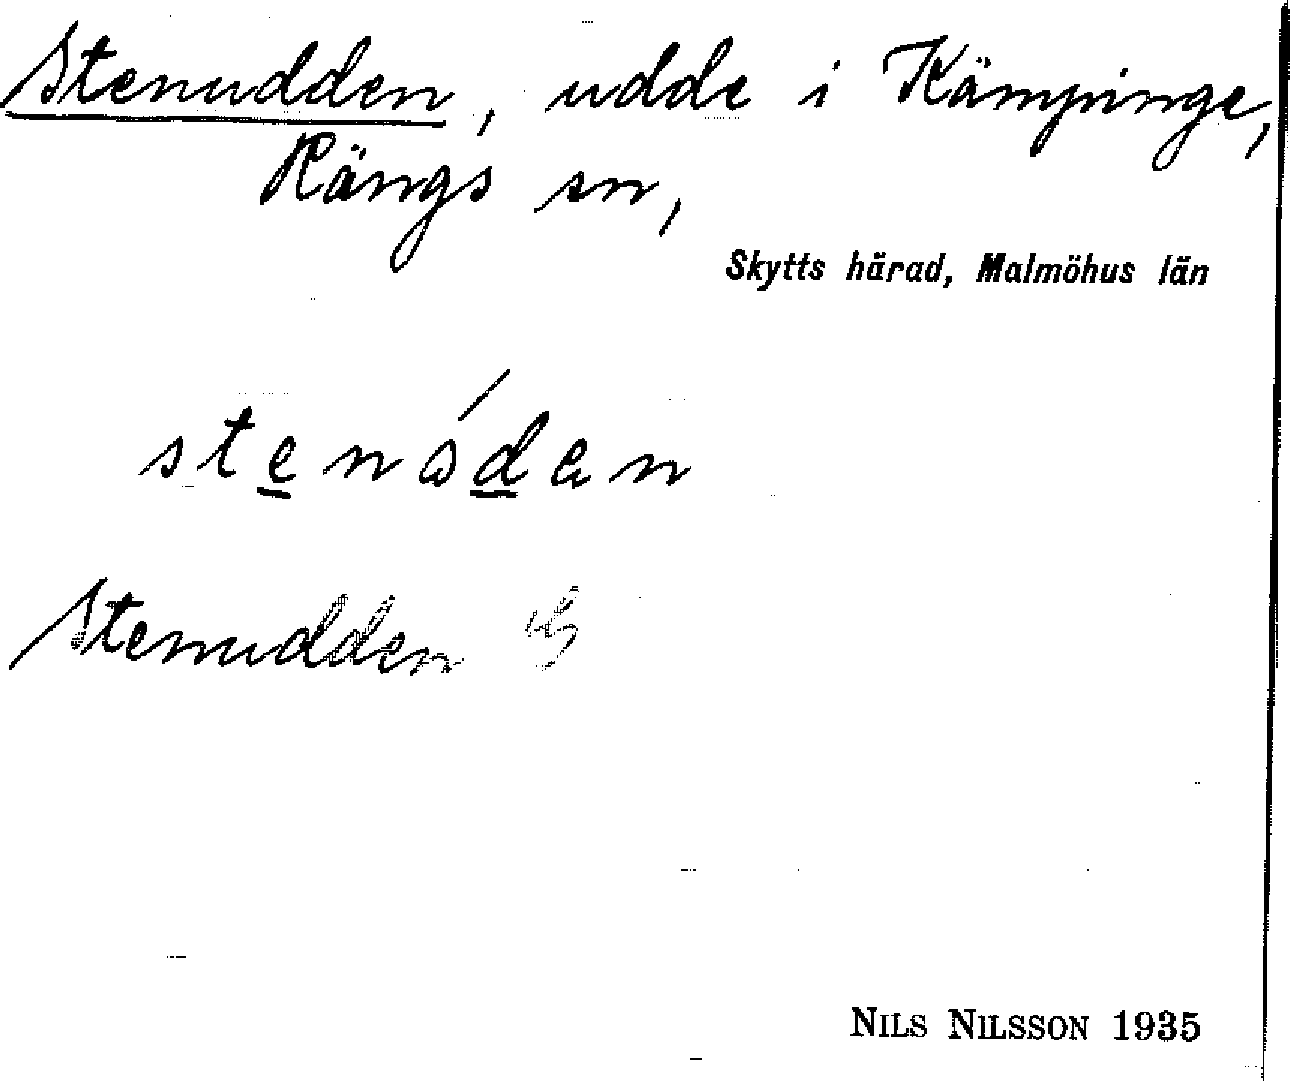 Stenudden, udde i Kämpinge,
Rängs sn,
Skytts härad, Malmöhus län
Stenudden
NILS NILSSON 1935